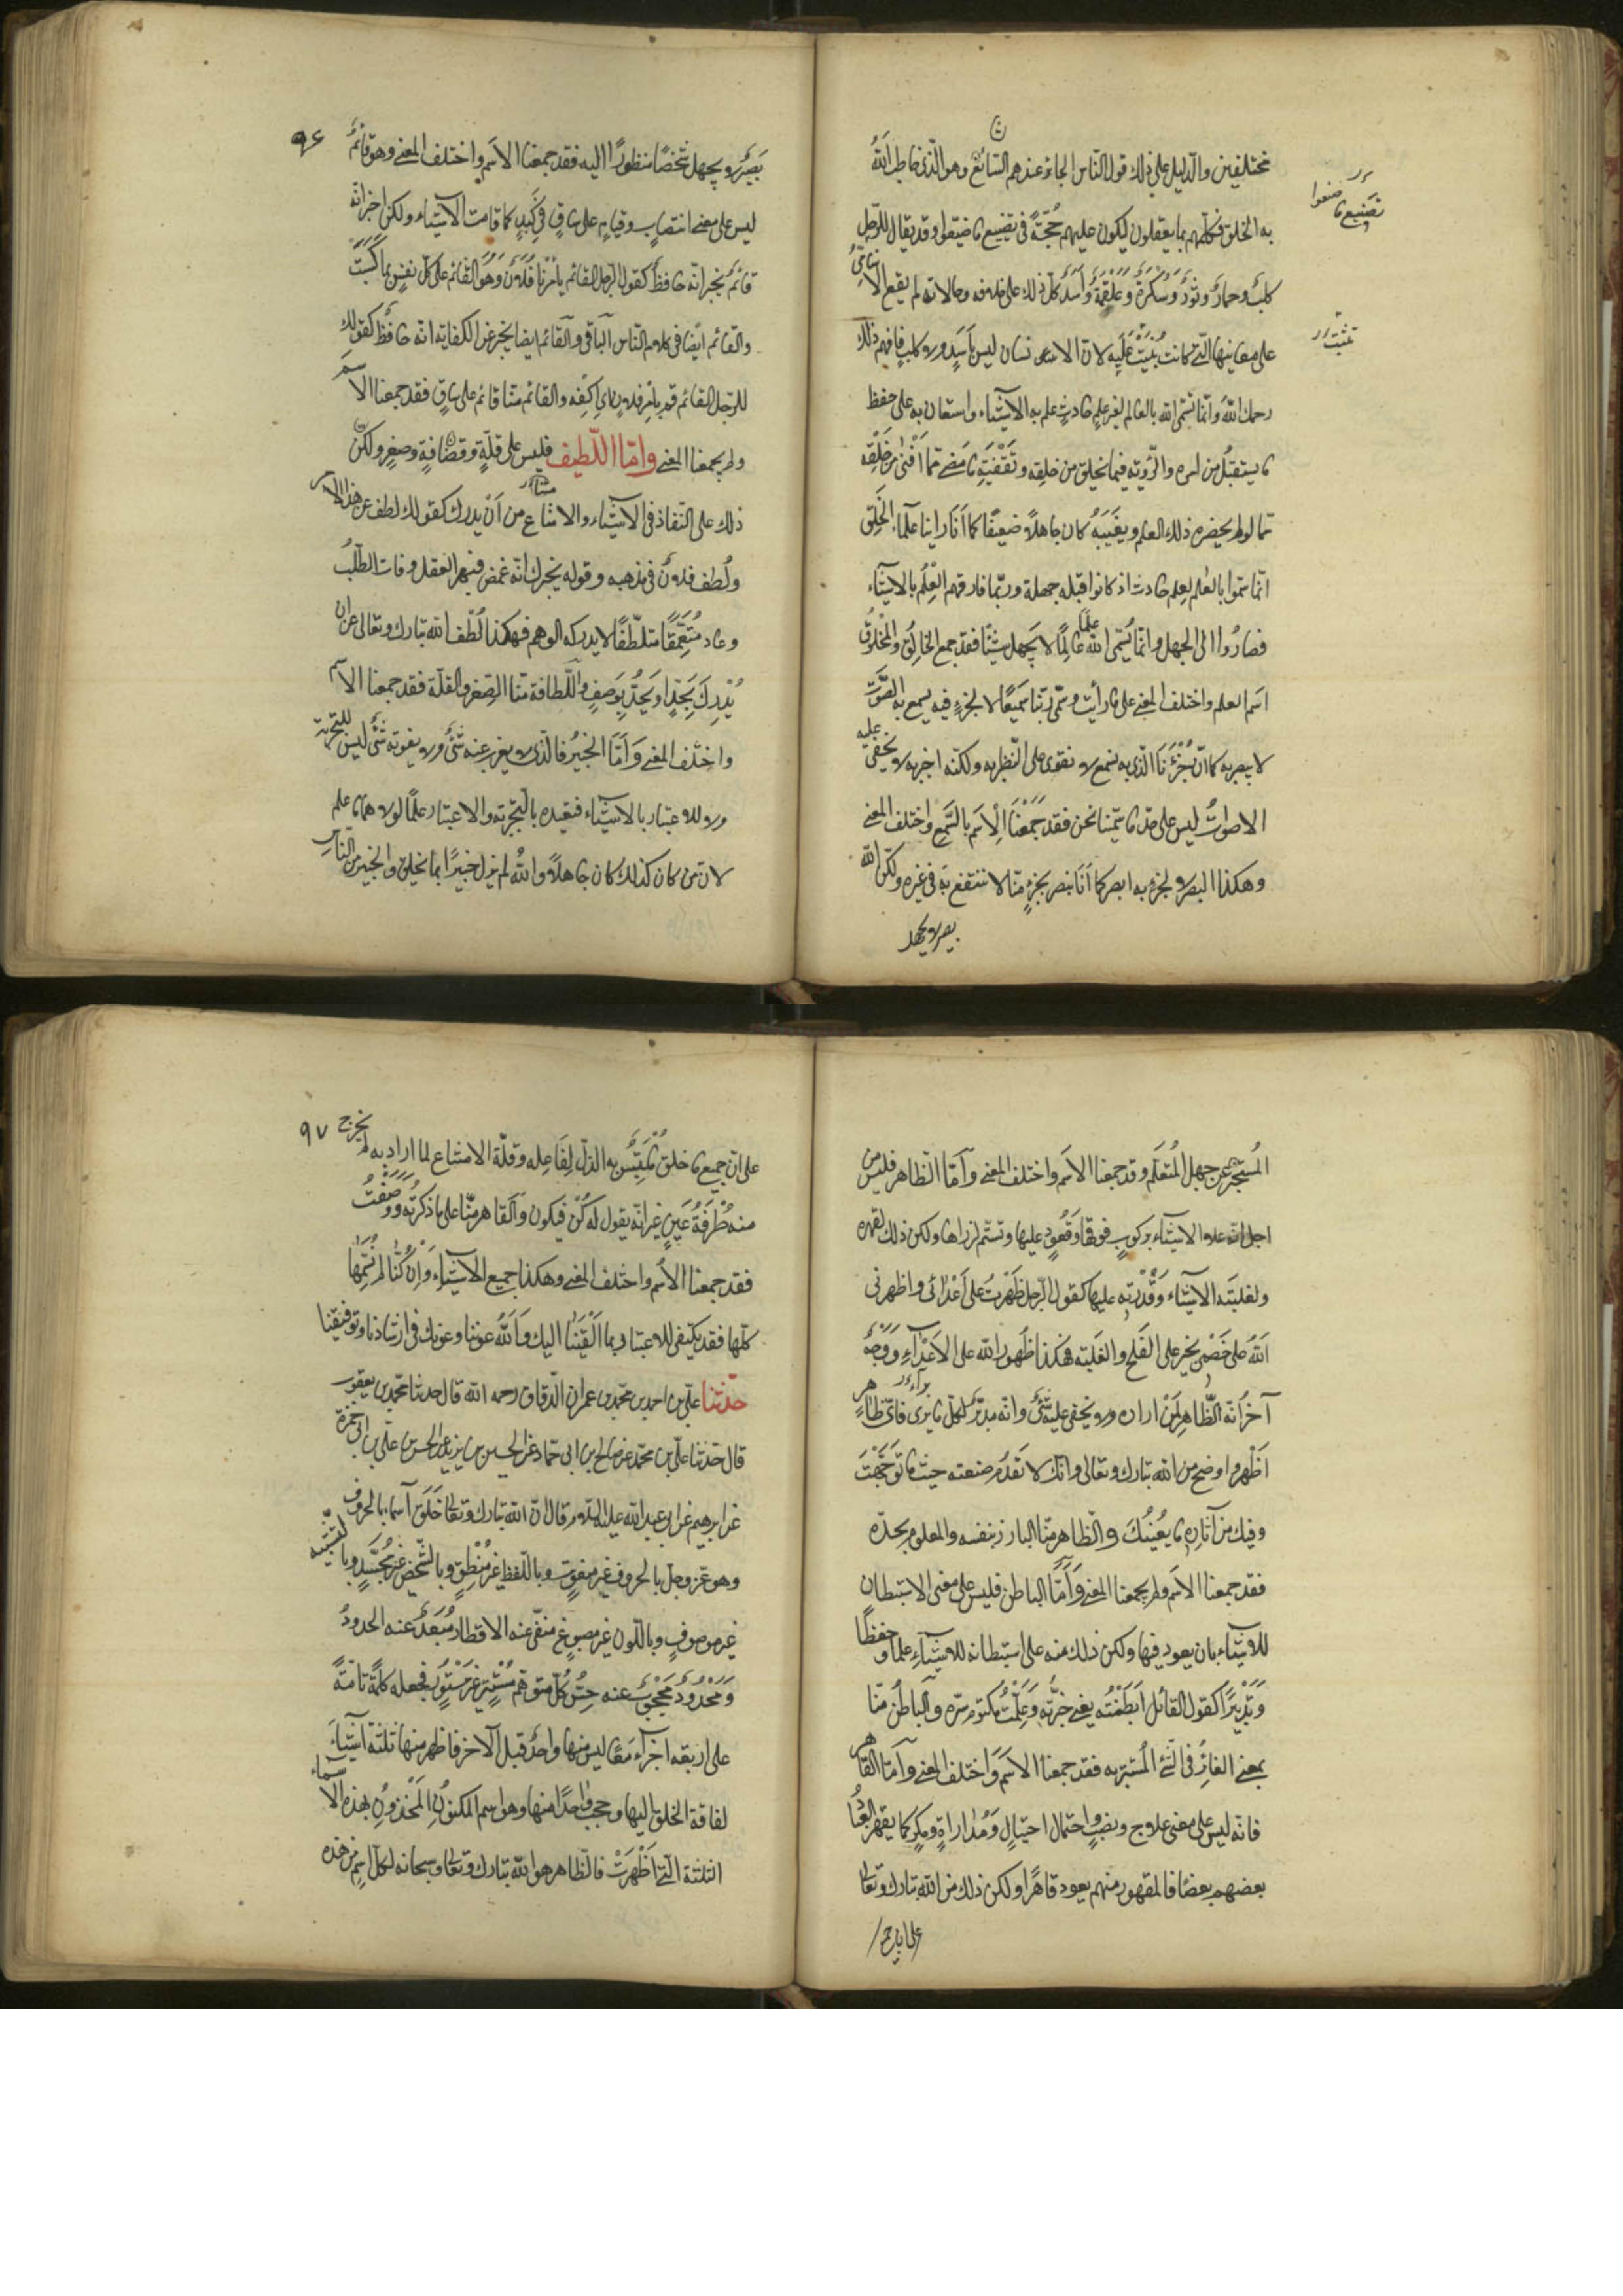 مختلفين والدليل على ذلك قول الناس الجائز عندهم السائغ وهو الذى خاطب الله
به الخلق فكلمهم بما يعقلون ليكون عليهم حجة فى تضييع ما ضيعوا وقد يقال للرجل
كلب وحمار وثور وسكرة وعلقمة وأسد كل ذلك على خلافه وحالاته لم يقع الاسامى
على معانيها التى كانت بنيت عليه لان الانسان ليس بأسد ولا كلب فافهم ذلك
رحمك الله وانما تسمى الله بالعالم لغير علم حادث علم به الاشياء واستعان به على حفظ
ما يستقبل من امره والروية فيما يخلق من خلقه وتقفيته ما مضى مما افنى من خلقه
مما لو لم يحضره ذلك العلم ويغيبه كان جاهلا ضعيفا كما انا راينا علماء الخلق
انما سموا بالعلم لعلم حادث اذ كانوا قبله جهلة وربما فارقهم العلم بالاشياء
فصاروا الى الجهل وانما يسمى الله عالما لا يجهل شيئا فقد جمع الخالق والمخلوق
اسم العلم واختلف المعنى على ما رأيت وسمى ربنا سميعا لا لجزء فيه يسمع به الصوت
لا يبصر به كما ان جزءنا الذى به نسمع لا نقوى على النظر به ولكنه اخبر به لا يخفى عليه
الاصوات ليس على حد ما سمينا نحن فقد جمعنا الاسم بالسمع واختلف المعنى
وهكذا البصر لا لجزء به ابصر كما انا نبصر بجزء منا لا ننتفع به فى غيره ولكن الله
بصير لا يجهل
تضييع ما صنعوا
بصير لا يجهل شخصا منظورا اليه فقد جمعنا الاسم واختلف المعنى وهو قائم
ليس على معنى انتصاب وقيام على ساق فى كبد كما قامت الاشياء ولكن اخبر انه
قائم يخبر انه حافظ كقول الرجل القائم بأمرنا فلان وهو القائم على كل نفس بما كسبت
والقائم ايضا فى كلام الناس الباقى والقائم ايضا يخبر عن الكفاية انه حافظ كقولك
للرجل القائم قم بامر فلان اى اكفه والقائم منا قائم على ساق فقد جمعنا الاسم
ولم يجمعنا المعنى واما اللطيف فليس على قلة وقضافة وصغر ولكن
ذلك على النفاذ فى الاشياء والامتناع من أن يدرك كقولك لطف عن هذا الامر
ولطف فلان فى مذهبه وقوله يخبرك انه غمض فبهر العقل وفات الطلب
وعاد متعمقا متلطفا لا يدركه الوهم فهكذا لطف الله تبارك وتعالى عن ان
يدرك بحد او يحد بوصف واللطافة منا الصغر والقلة فقد جمعنا الاسم
واختلف المعنى وأما الخبير فالذى لا يعزب عنه شئ ولا يفوته شئ ليس للتجربة
ولا للاعتبار بالاشياء فيفيده بالتجربة والاعتبار علما لولاهما ما علم
لان من كان كذلك كان جاهلا والله لم يزل خبيرا بما يخلق والخبير من الناس
المستخبر عن جهل المتعلم وقد جمعنا الاسم واختلف المعنى وأما الظاهر فليس من
اجل انه علا الاشياء بركوب فوقها وقعود عليها وتسنم لذراها ولكن ذلك لقهره
ولغلبته الاشياء وقدرته عليها كقول الرجل ظهرت على أعدائى واظهرنى
الله على خصمى يخبر على الفلج والغلبة فهكذا ظهور الله على الاعداء ووجه
آخر أنه الظاهر لمن اراده ولا يخفى عليه شئ وانه مدبر لكل ما يرى فاى ظاهر
أظهر واوضح من الله تبارك وتعالى وانك لا تعدم صنعته حيث ما توجهت
وفيك من آثاره ما يغنيك والظاهر منا البارز بنفسه والمعلوم بحده
فقد جمعنا الاسم ولم يجمعنا المعنى وأما الباطن فليس على معنى الاستبطان
للاشياء بان يعود فيها ولكن ذلك منه على استبطانه للاشياء علما وحفظا
وتدبيرا كقول القائل ابطنته يعنى خبرته وعلمت مكتوم سره والباطن منا
بمعنى الغائر فى الشئ المستتر به فقد جمعنا الاسم واختلف المعنى وأما القاهر
فانه ليس على معنى علاج ونصب واحتمال احتيال ومداراة ومكر كما يقهر العباد
بعضهم بعضا فالمقهور منهم يعود قاهرا ولكن ذلك من الله تبارك وتعالى
٩٧
على ان جميع ما خلق ملتبس به الذل لفاعله وقلة الامتناع لما اراد به لم يخرج
منه طرفة عين غير انه يقول له كن فيكون والقاهر منا على ما ذكرته ووصفت
فقد جمعنا الاسم واختلف المعنى وهكذا جميع الاشياء وان كنا لم نسمها
كلها فقد يكتفى للاعتبار بما القينا اليك والله عوننا وعونك فى ارشادنا وتوفيقنا
حدثنا على بن احمد بن محمد بن عمران الدقاق رحمه الله قال حدثنا محمد بن يعقوب
قال حدثنا على بن محمد عن صالح بن ابى حماد عن الحسين بن يزيد عن الحسن بن على بن ابى حمزة
عن ابرهيم عن ابى عبد الله عليه السلام قال ان الله تبارك وتعالى خلق اسماء بالحروف
وهو عز وجل بالحروف غير منعوت وباللفظ غير منطق وبالشخص غير مجسد وبالتشبيه
غير موصوف وباللون غير مصبوغ منفى عنه الاقطار مبعد عنه الحدود
ومحدود محجوب عنه حس كل متوهم مستتر غير مستور فجعله كلمة تامة
على اربعة اجزاء معا ليس منها واحد قبل الاخر فاظهر منها ثلثة اشياء
لفاقة الخلق اليها وحجب واحدا منها وهو اسم المكنون المخزون بهذه الاسماء
الثلثة التى أظهرت فالظاهر هو الله تبارك وتعالى وسبحانه لكل اسم من هذه